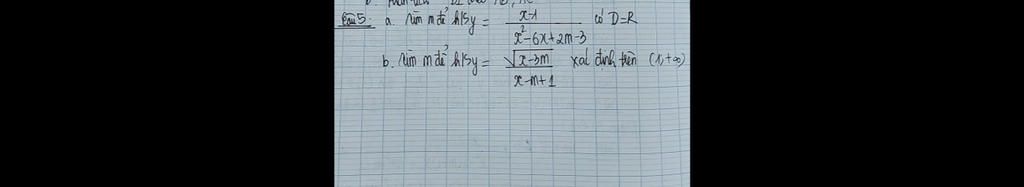 Câu 5. a. Tìm m để h/s y = \frac{x-1}{x^2-6x+2m-3} có D=R
b. Tìm m để h/s y = \frac{\sqrt{x-3m}}{x-m+1} xác định trên (1,+∞)